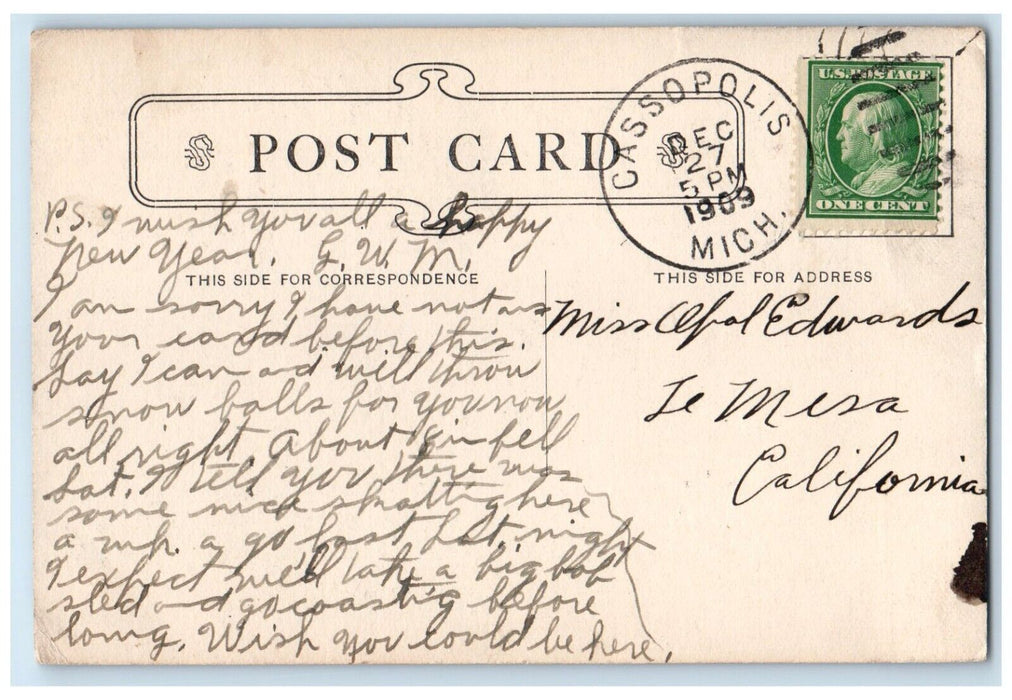 POST CARD
CASSOPOLIS
DEC
27
5 PM
1909
MICH.
U.S. POSTAGE
ONE CENT
P.S. I wish you all a happy
New Year. G. W. M.
THIS SIDE FOR CORRESPONDENCE
I am sorry I have not ans
your card before this.
Say I can and will throw
snow balls for you now
all right. About in fell
Sat. I tell you there was
some nice skatting here
a wk. a go last Sat. night
I expect we'll take a big bob
sled and go coasting before
long. Wish you could be here.
THIS SIDE FOR ADDRESS
Miss Opal Edwards
Le Mesa
California